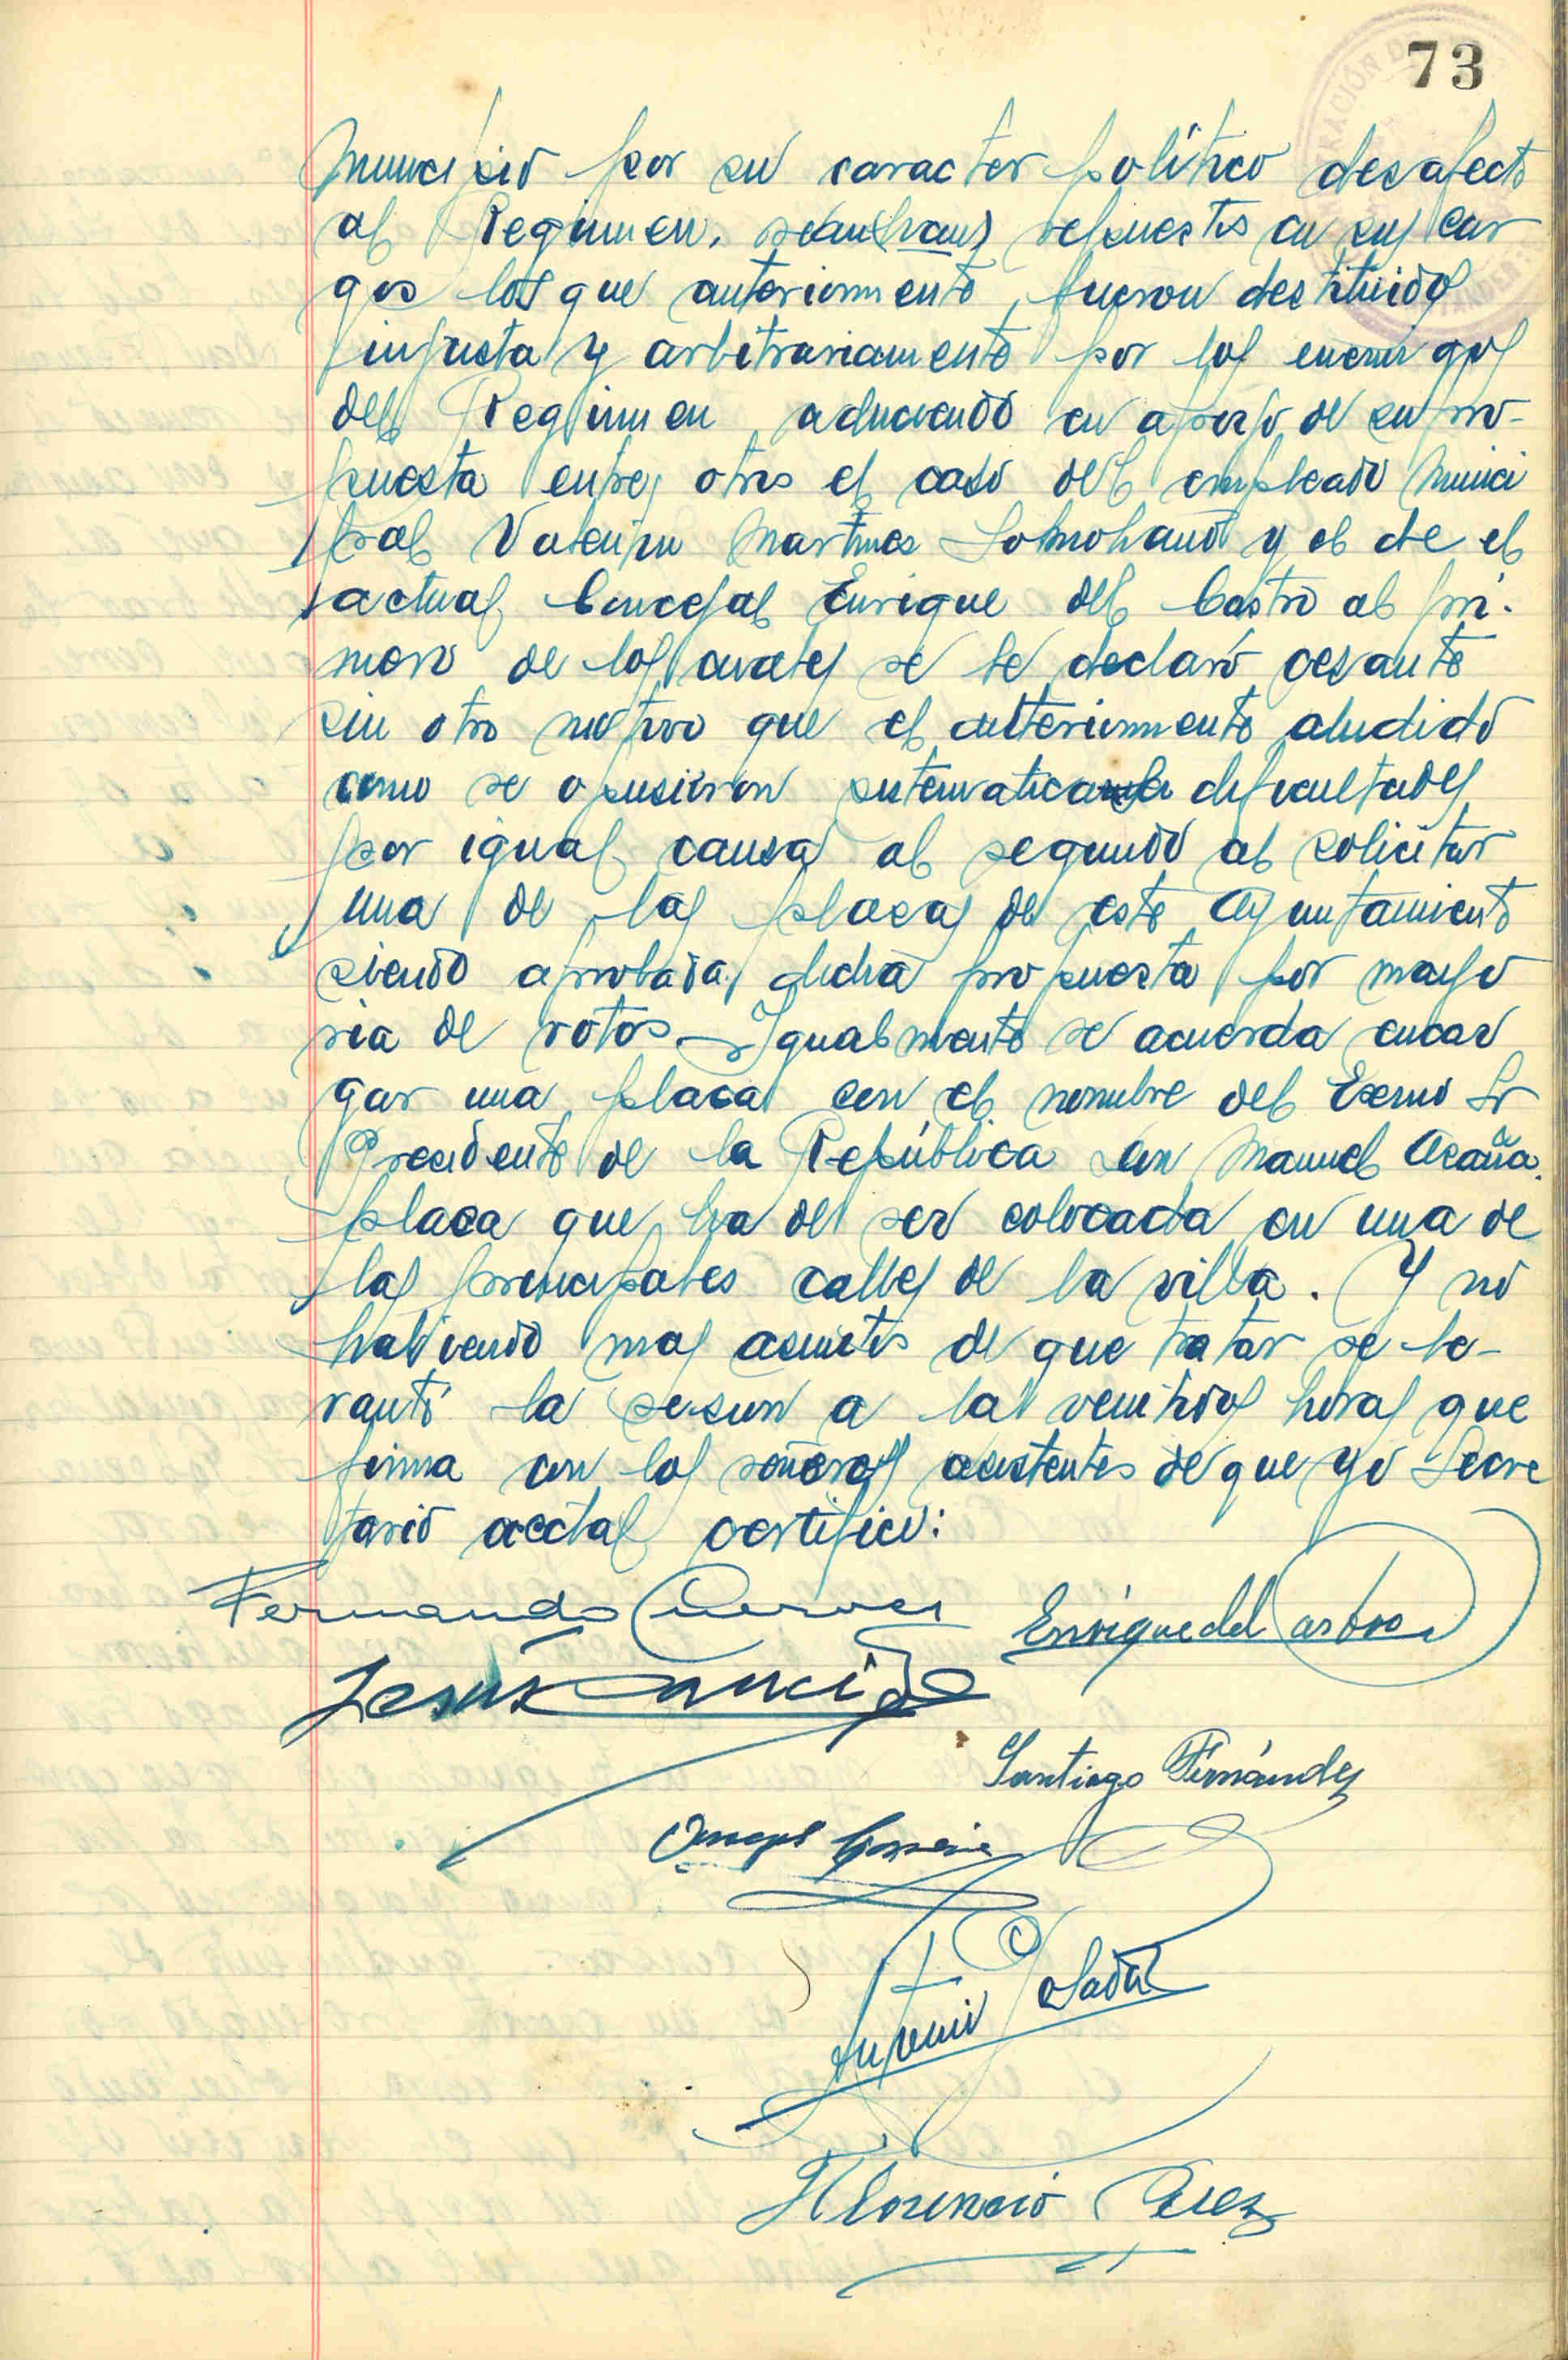 73
Municipio por su caracter politico desafecto
al Regimen. sean repuestos en sus car
gos los que anteriormente, fueron destituidos
injusta y arbitrariamente por los enemigos
del Regimen aduciendo en apoyo de su pro-
puesta entre otros el caso del empleado Munici
pal Martinez y el de el
actual Concejal Enrique del Castro al pri-
mero de los cuales se le declaró cesante
sin otro motivo que el anteriormente aludido
como se opusieron dificultades
por igual causa al segundo al solicitar
una de las plazas de este Ayuntamiento
siendo aprobada dicha propuesta por mayo
ria de votos. Igualmente se acuerda encar
gar una placa con el nombre del Excmo Sr
Presidente de la República Don Manuel Azaña.
placa que ha de ser colocada en una de
las principales calles de la villa. Y no
habiendo mas asuntos de que tratar se le-
vantó la sesion a las veintidos horas que
firma con los señores asistentes de que yo Secre
tario acctal certifico:
Fernando Enrique del Castro
Jesus
Santiago Fernández
Angel Garcia
Antonio Posada
Florencio Perez